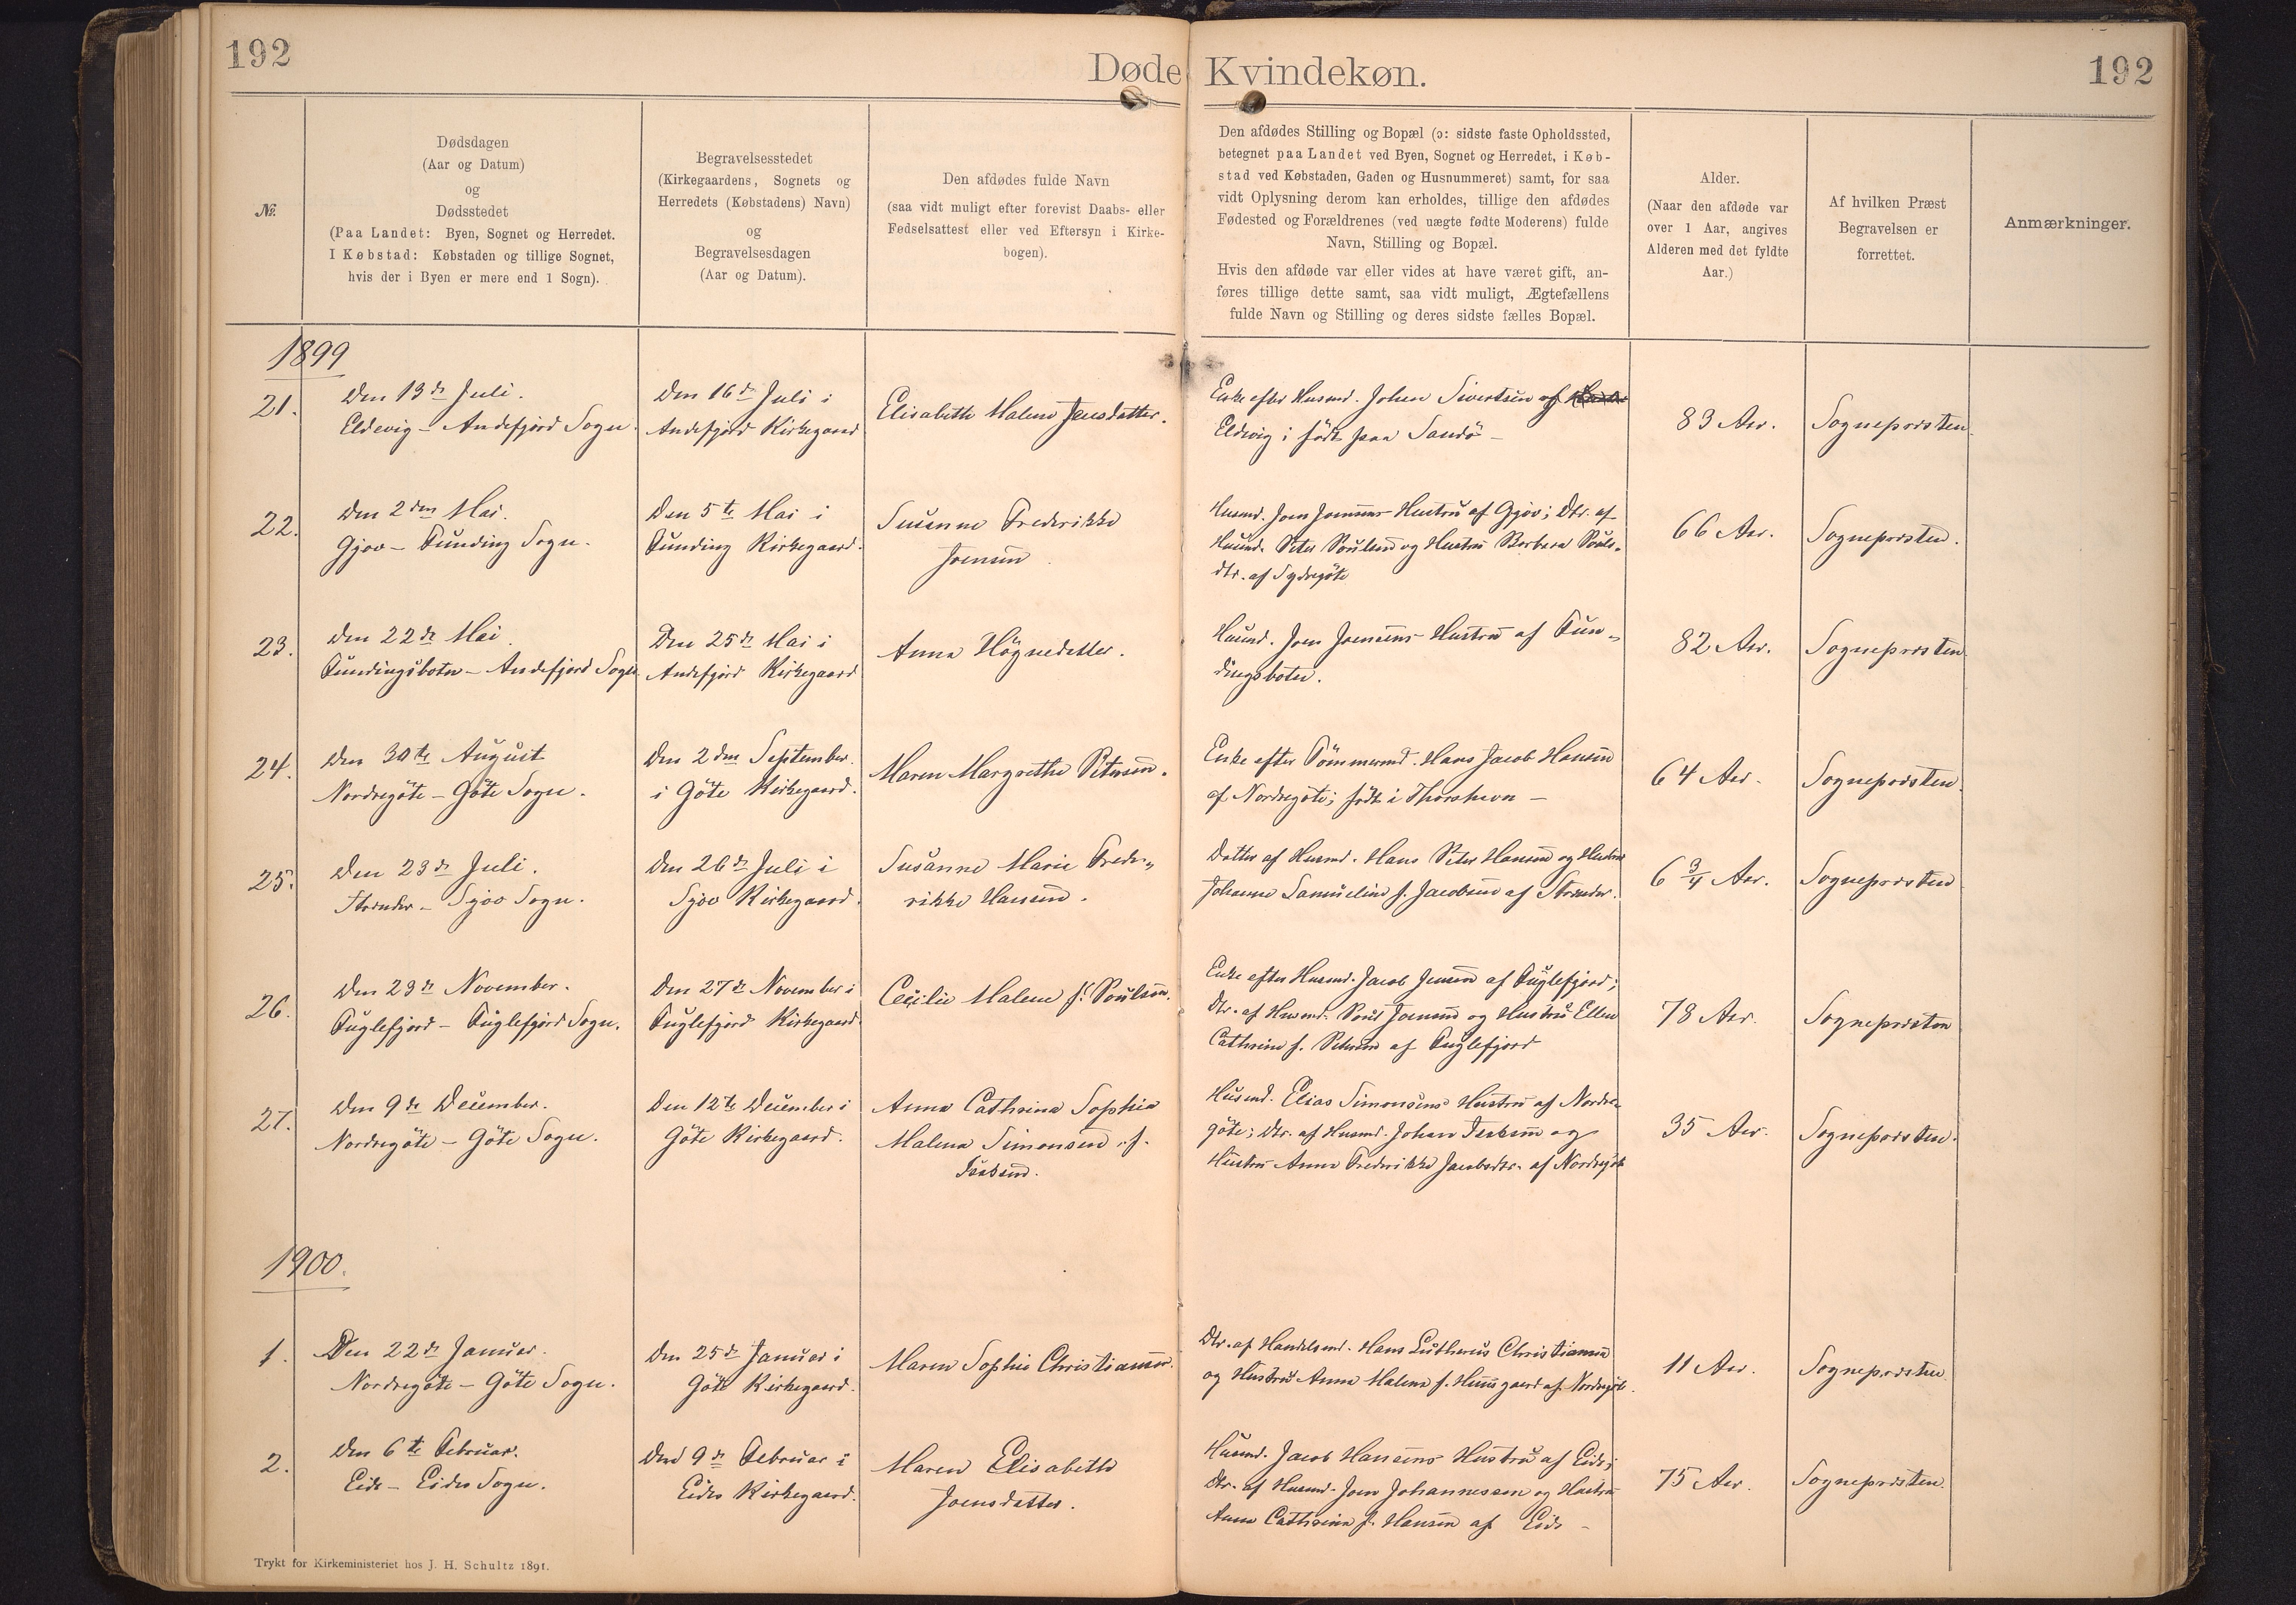 192
Døde Kvindekøn.
192
№
Dødsdagen
(Aar og Datum)
og
Dødsstedet
(Paa Landet: Byen, Sognet og Herredet.
I Købstad: Købstaden og tillige Sognet,
hvis der i Byen er mere end 1 Sogn).
Begravelsesstedet
(Kirkegaardens, Sognets og
Herredets (Købstadens) Navn)
og
Begravelsesdagen
(Aar og Datum).
Den afdødes fulde Navn
(saa vidt muligt efter forevist Daabs- eller
Fødselsattest eller ved Eftersyn i Kirke-
bogen).
Den afdødes Stilling og Bopæl (ɔ: sidste faste Opholdssted,
betegnet paa Landet ved Byen, Sognet og Herredet, i Køb-
stad ved Købstaden, Gaden og Husnummeret) samt, for saa
vidt Oplysning derom kan erholdes, tillige den afdødes
Fødested og Forældrenes (ved uægte fødte Moderens) fulde
Navn, Stilling og Bopæl.
Hvis den afdøde var eller vides at have været gift, an-
føres tillige dette samt, saa vidt muligt, Ægtefællens
fulde Navn og Stilling og deres sidste fælles Bopæl.
Alder.
(Naar den afdøde var
over 1 Aar, angives
Alderen med det fyldte
Aar.)
Af hvilken Præst
Begravelsen er
forrettet.
Anmærkninger.
1899
21.
Den 13de Juli.
Eldevig - Andefjord Sogn.
Den 16de Juli i
Andefjord Kirkegaard
Elisabeth Malene Jensdatter.
Enke efter Husmd. Johan Sivertsen af
Eldevig; født paa Sandö -
83 Aar.
Sognepræsten.
22.
Den 2den Mai.
Gjov - Funding Sogn.
Den 5te Mai i
Funding Kirkegaard.
Susanne Frederikke
Joensen.
Husmd. Joen Joensens Hustru af Gjov; Dtr. af
Husmd. Peter Poulsen og Hustru Barbara Pouls-
dtr. af Sydregöte
66 Aar.
Sognepræsten.
23.
Den 22de Mai.
Fundingsboten - Andefjord Sogn
Den 25de Mai i
Andefjord Kirkegaard
Anna Högnedatter.
Husmd. Joen Joensens Hustru af Fun-
dingsboten.
82 Aar.
Sognepræsten.
24.
Den 30te August
Nordregöte - Göte Sogn.
Den 2den September
i Göte Kirkegaard.
Maren Margrethe Petersen.
Enke efter Tömmermd. Hans Jacob Hansen
af Nordregöte; født i Thorshavn -
64 Aar.
Sognepræsten.
25.
Den 23de Juli.
Strender - Sjov Sogn.
Den 26de Juli i
Sjov Kirkegaard.
Susanne Marie Frede-
rikke Hansen.
Datter af Husmd. Hans Peter Hansen og Hustru
Johanne Samueline f. Jacobsen af Strender.
6 3/4 Aar.
Sognepræsten
26.
Den 23de November.
Fuglefjord - Fuglefjord Sogn.
Den 27de November i
Fuglefjord Kirkegaard.
Cecilie Malene f. Poulsen.
Enke efter Husmd. Jacob Jensen af Fuglefjord;
Dtr. af Husmd. Poul Joensen og Hustru Ellen
Cathrine f. Petersen af Fuglefjord
78 Aar.
Sognepræsten
27.
Den 9de December.
Nordregöte - Göte Sogn.
Den 12te December i
Göte Kirkegaard.
Anna Cathrina Sophia
Malena Simonsen, f.
Husmd. Elias Simonsens Hustru af Nordre-
göte; Dtr. af Husmd. Johan og
Hustru Anna Frederikke Jacobsdtr. af Nordregöte
35 Aar.
Sognepræsten.
1900.
1.
Den 22de Januar.
Nordregöte - Göte Sogn.
Den 25de Januar i
Göte Kirkegaard.
Maren Sophie Christiansen.
Dtr. af Handelsmd. Hans Lutherus Christiansen
og Hustru Anna Malena f. af Nordregöte.
11 Aar.
Sognepræsten.
2.
Den 6te Februar.
Eide - Eides Sogn.
Den 9de Februar i
Eides Kirkegaard.
Maren Elisabeth
Joensdatter.
Husmd. Jacob Hansens Hustru af Eide;
Dtr. af Husmd. Joen Johannessen og Hustru
Anna Cathrina f. Hansen af Eide -
75 Aar.
Sognepræsten.
Trykt for Kirkeministeriet hos J. H. Schultz 1891.